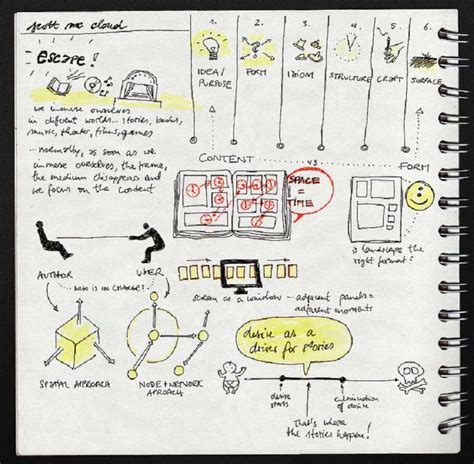 scott mc cloud
Escape!
we immerse ourselves
in different worlds... stories, books,
music, theater, films, games
- normally, as soon as we
immerse ourselves, the frame,
the medium disappears and
we focus on the content
1.
IDEA/
PURPOSE
2.
FORM
3.
IDIOM
4.
STRUCTURE
5.
CRAFT
6.
SURFACE
CONTENT
vs
FORM
SPACE
=
TIME
is landscape the
right format?
AUTHOR
USER
WHO IS IN CHARGE?
screen as a window - adjacent panels =
adjacent moments
SPATIAL APROACH
NODE + NETWORK
APROACH
desire as a
driver for stories
desire
starts
culmination
of desire
that's where
the stories happen!